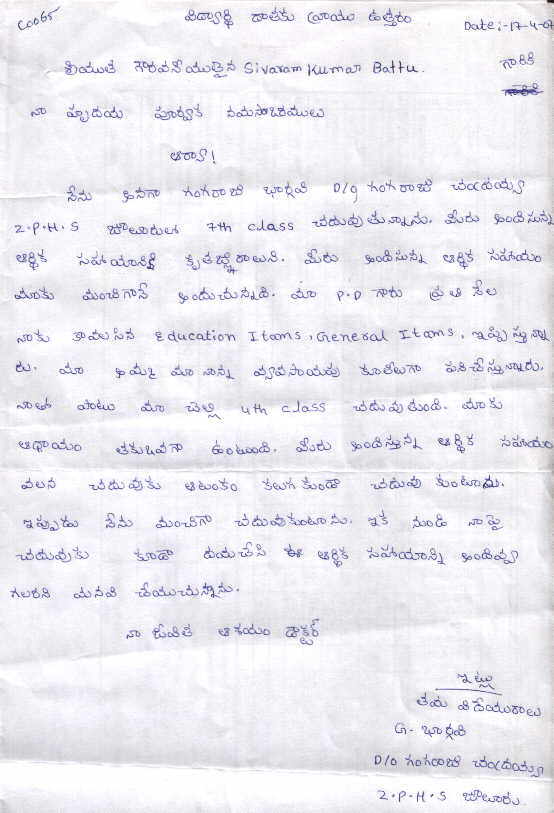 C0065
విద్యార్థి దాతకు వ్రాయు ఉత్తరం
Date:-17-4-07
శ్రీయుత గౌరవనీయులైన Sivaram Kumar Battu. గారికి
నా హృదయ పూర్వక నమస్కారములు
ఆర్యా!
నేను అనగా గంగరాజు భార్గవి D/o గంగరాజు చంద్రయ్య
Z.P.H.S జూలూరులో 7th class చదువుతున్నాను. మీరు అందిస్తున్న
ఆర్థిక సహాయానికి కృతజ్ఞురాలుని. మీరు అందిస్తున్న ఆర్థిక సహాయం
మాకు మంచిగానే అందుచున్నది. మా P.D గారు ప్రతి నేల
నాకు కావలసిన Education Itams, General Itams, ఇప్పిస్తున్నా
రు. మా అమ్మ మా నాన్న వ్యవసాయపు కూలీలుగా పనిచేస్తున్నారు.
నాతో పాటు మా చెల్లి 4th class చదువుతుంది. మాకు
ఆధాయం తకువగా ఉంటుంది. మీరు అందిస్తున్న ఆర్థిక సహాయం
వలన చదువుకు ఆటంకం కలుగకుండా చదువు కుంటాను.
ఇప్పుడు నేను మంచిగా చదువుకుంటాను. ఇక నుండి నాపై
చదువుకు కూడా దయచేసి ఈ ఆర్థిక సహాయాన్ని అందివ్వ
గలరని మనవి చేయుచున్నాను.
నా జీవిత ఆశయం డాక్టర్
ఇట్లు
తమ విదేయురాలు
G. భార్గవి
D/o గంగరాజు చంద్రయ్య
Z.P.H.S జూలూరు.